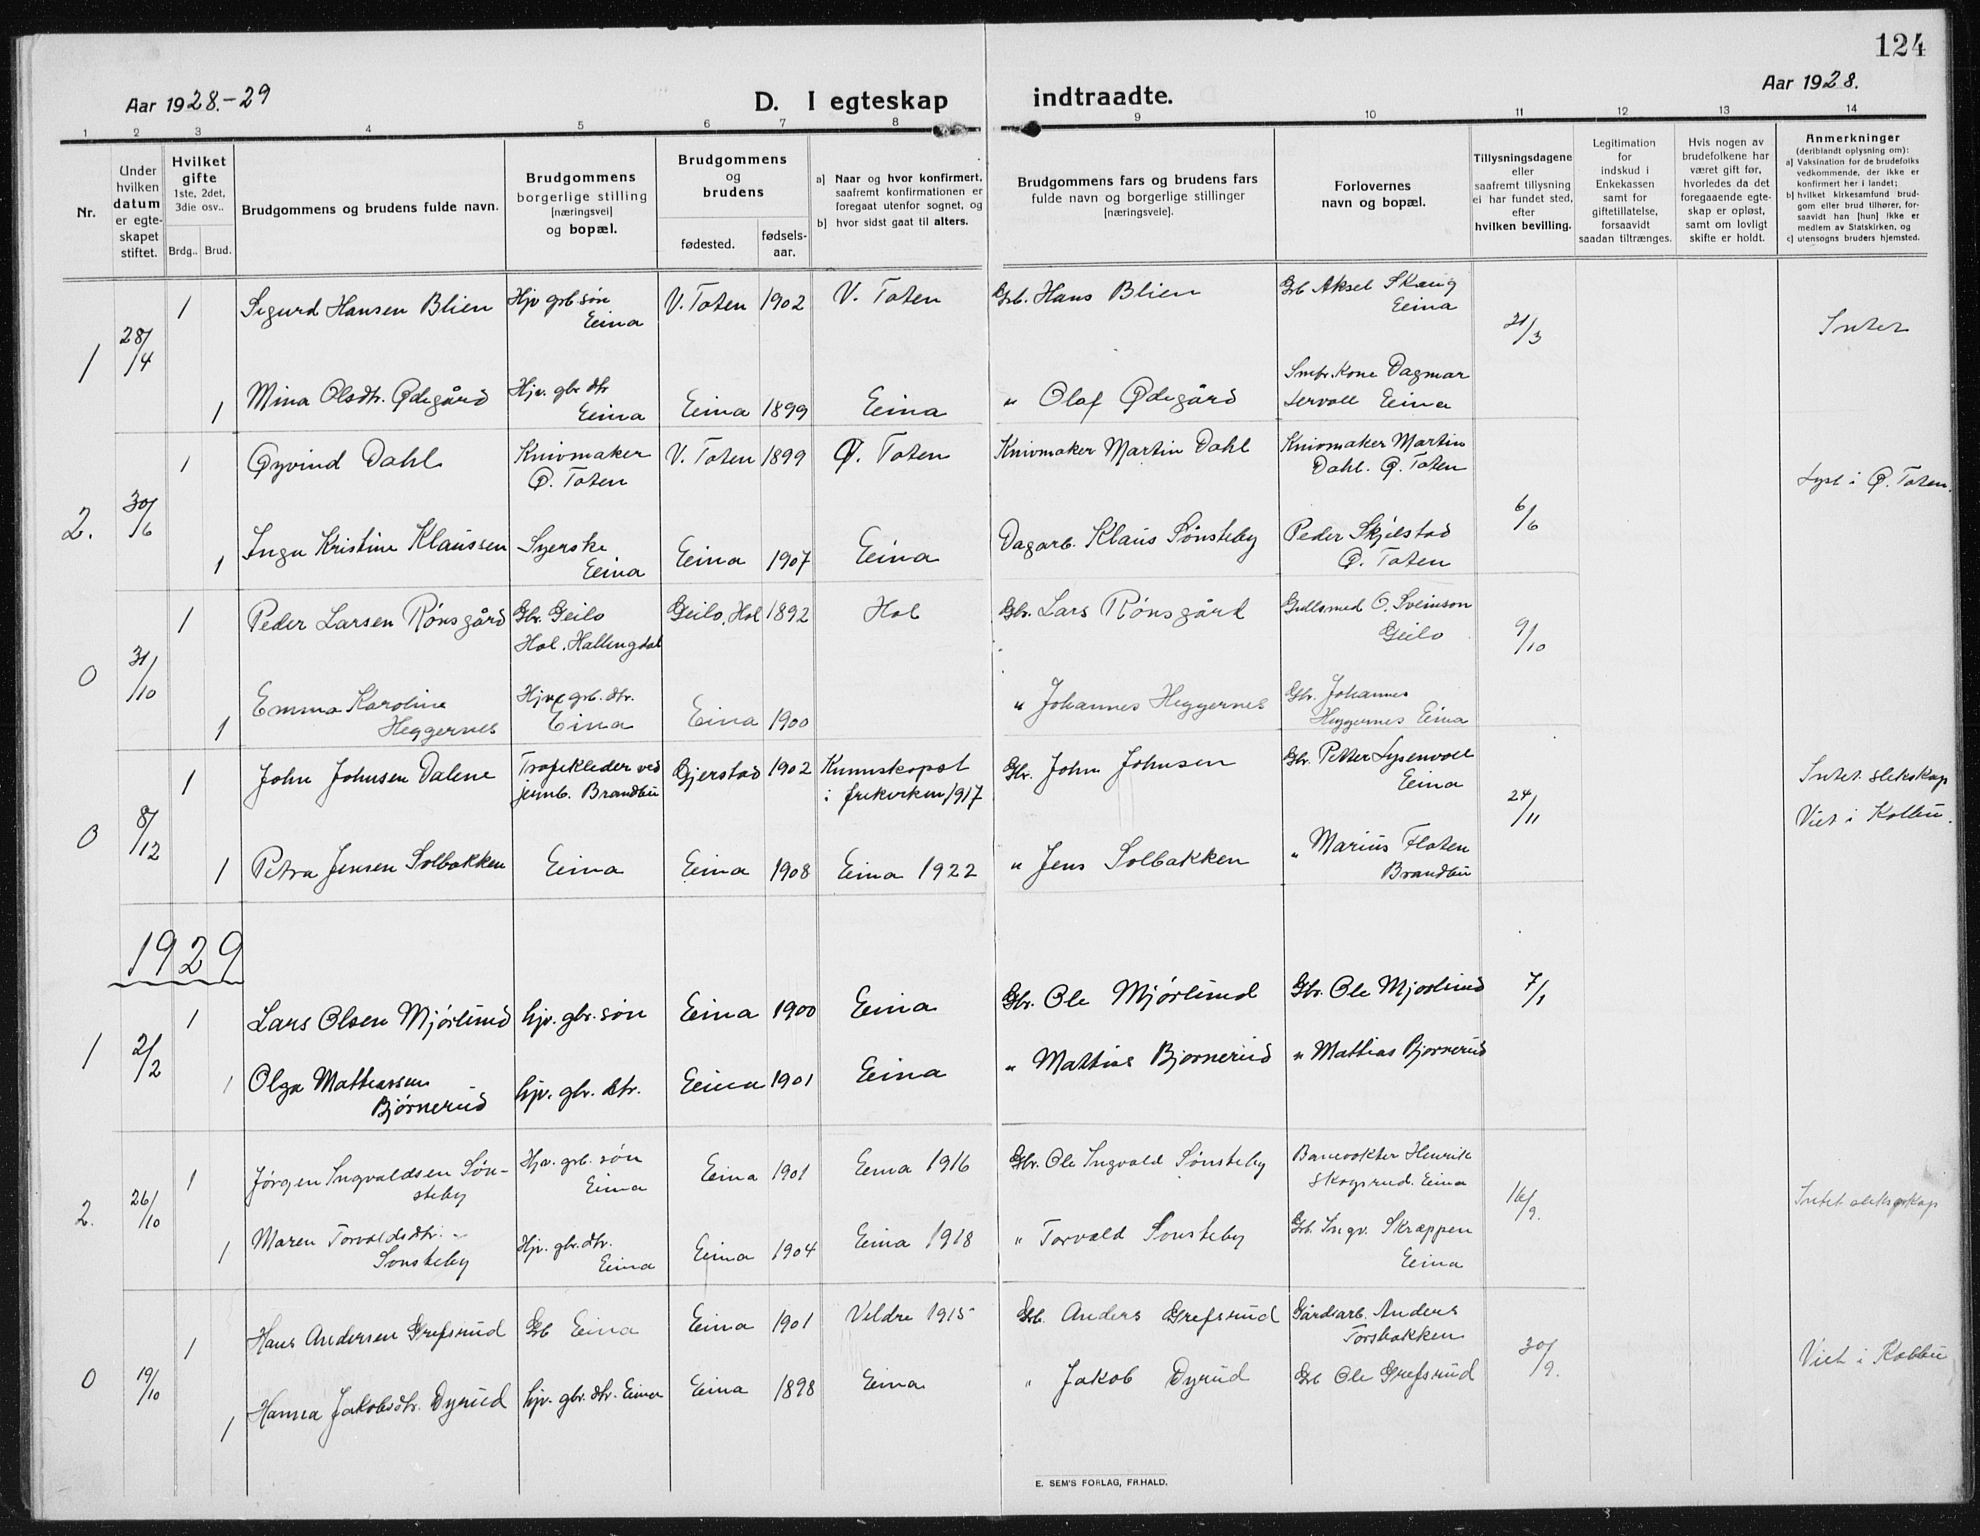 124
Aar 1928.-29
D. I egteskap indtraadte.
Aar 1928.
1 2 3 4 5 6 7 8 9 10 11 12 13 14
Nr.
Under
hvilken
datum
er egte-
skapet
stiftet.
Hvilket
gifte
1ste, 2det,
3die osv..
Brdg.. Brud.
Brudgommens og brudens fulde navn.
Brudgommens
borgerlige stilling
[næringsvei]
og bopæl.
Brudgommens
og
brudens
fødested.
fødsels-
aar.
a] Naar og hvor konfirmert,
saafremt konfirmationen er
foregaat utenfor sognet, og
b] hvor sidst gaat til alters.
Brudgommens fars og brudens fars
fulde navn og borgerlige stillinger
[næringsveie].
Forlovernes
navn og bopæl.
Tillysningsdagene
eller
saafremt tillysning
ei har fundet sted,
efter
hvilken bevilling.
Legitimation
for
indskud i
Enkekassen
samt for
giftetillatelse,
forsaavidt
saadan tiltrænges.
Hvis nogen av
brudefolkene har
været gift før,
hvorledes da det
foregaaende egte-
skap er opløst,
samt om lovligt
skifte er holdt.
Anmerkninger
(deriblandt oplysning om):
a] Vaksination for de brudefolks
vedkommende, der ikke er
konfirmert her i landet;
b] hvilket kirkesamfund brud-
gom eller brud tilhører, for-
saavidt han [hun] ikke er
medlem av Statskirken, og
c] utensogns bruders hjemsted.
1 28/4
1 Sigurd Hansen Blien Hjv grb. søn Eina V. Toten 1902 V. Toten Grb. Hans Blien Grb Aksel Skaug Eina 21/3 Intet
1 Mina Olsdtr. Ødegård Hjv. gbr dtr Eina Eina 1899 Eina " Olaf Ødegård Smbr. Kone Dagmar Eina
2. 30/6
1 Øyvind Dahl Knivmaker Ø. Toten V. Toten 1899 Ø. Toten Knivmaker Martin Dahl Knivmaker Martin Dahl. Ø. Toten 6/6 Lyst i Ø. Toten.
1 Inga Kristine Klaussen Syerske Eina Eina 1907 Eina Dagarb. Klaus Sønsteby Peder Skjelstad Ø. Toten
0 31/10
1 Peder Larsen Rønsgård Gbr. Geilo Hol. Hallingdal Geilo, Hol 1892 Hol Gbr. Lars Rønsgård Gullsmed O. Sveinson Geilo 9/10
1 Emma Karoline Heggernes Hjv. grb. dtr. Eina Eina 1900 " Johannes Heggernes Gbr. Johannes Heggernes Eina
0 8/12
1 John Johnsen Dalene Trafikleder ved jernb. Brandbu Gjerstad 1902 Kunnskapst i frikirken 1917 Gbr. John Johnsen Gbr. Petter Lysenvoll Eina 24/11 Intet slekskap
Viet i Kolbu.
1 Petra Jensen Solbakken Eina Eina 1908 Eina 1922 " Jens Solbakken " Marius Floten Brandbu
1929
1 2/2
1 Lars Olsen Mjørlund hjv. gbr. søn Eina 1900 Eina Gbr. Ole Mjørlund Gbr. Ole Mjørlund 7/1
1 Olga Mathiassen Bjørnerud hjv. gbr. dtr. Eina 1901 Eina " Mathias Bjørnerud " Mathias Bjørnerud
2. 26/10
1 Jørgen Ingvaldsen Søn-
steby Hjv. grb. søn Eina Eina 1901 Eina 1916 Gbr. Ole Ingvald Sønsteby Banevokter Henrik Skogsrud. Eina 16/9. Intet slektskap
1 Maren Torvaldsdtr. Sønsteby Hjv. gbr. dtr. Eina Eina 1904 Eina 1918 " Torvald Sønsteby Grb. Ingv. Skræppen Eina
0 19/10
1 Hans Andersen Grefsrud Grb Eina Eina 1901 Veldre 1915 Grb. Anders Grefsrud Gårdsarb. Anders Torsbakken 30/9. Viet i Kolbu
1 Hanna Jakobsdtr. Dyrud hjv. gbr. dtr. Eina Eina 1898 Eina " Jakob Dyrud Grb Ole Grefsrud
E. SEM'S FORLAG, FR.HALD.